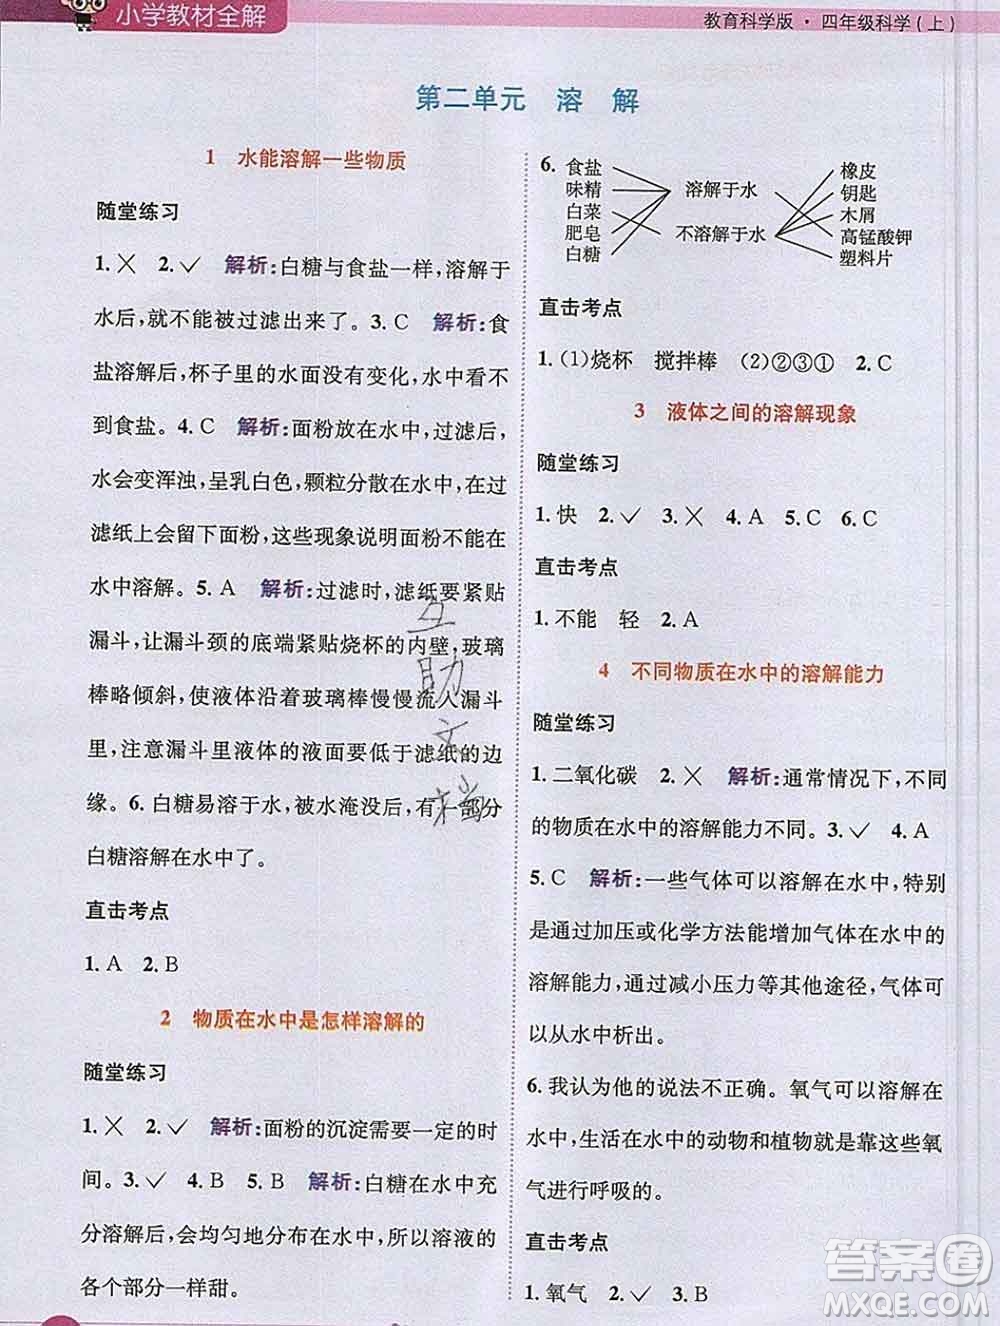 小学教材全解
教育科学版·四年级科学(上)
第二单元 溶 解
1 水能溶解一些物质
随堂练习
1.✕ 2.✓ 解析:白糖与食盐一样,溶解于
水后,就不能被过滤出来了。3.C 解析:食
盐溶解后,杯子里的水面没有变化,水中看不
到食盐。4.C 解析:面粉放在水中,过滤后,
水会变浑浊,呈乳白色,颗粒分散在水中,在过
滤纸上会留下面粉,这些现象说明面粉不能在
水中溶解。5.A 解析:过滤时,滤纸要紧贴
漏斗,让漏斗颈的底端紧贴烧杯的内壁,玻璃
棒略倾斜,使液体沿着玻璃棒慢慢流入漏斗
里,注意漏斗里液体的液面要低于滤纸的边
缘。6.白糖易溶于水,被水淹没后,有一部分
白糖溶解在水中了。
直击考点
1.A 2.B
2 物质在水中是怎样溶解的
随堂练习
1.✕ 2.✓ 解析:面粉的沉淀需要一定的时
间。3.✓ 4.B 5.B 解析:白糖在水中充
分溶解后,会均匀地分布在水中,所以溶液的
各个部分一样甜。
6.食盐
味精
白菜
肥皂
白糖
溶解于水
不溶解于水
橡皮
钥匙
木屑
高锰酸钾
塑料片
直击考点
1.(1)烧杯 搅拌棒 (2)②③① 2.C
3 液体之间的溶解现象
随堂练习
1.快 2.✓ 3.✕ 4.A 5.C 6.C
直击考点
1.不能 轻 2.A
4 不同物质在水中的溶解能力
随堂练习
1.二氧化碳 2.✕ 解析:通常情况下,不同
的物质在水中的溶解能力不同。3.✓ 4.A
5.C 解析:一些气体可以溶解在水中,特别
是通过加压或化学方法能增加气体在水中的
溶解能力,通过减小压力等其他途径,气体可
以从水中析出。
6.我认为他的说法不正确。氧气可以溶解在
水中,生活在水中的动物和植物就是靠这些氧
气进行呼吸的。
直击考点
1.氧气 2.✓ 3.B
互助文档
答案圈
MXQE.COM